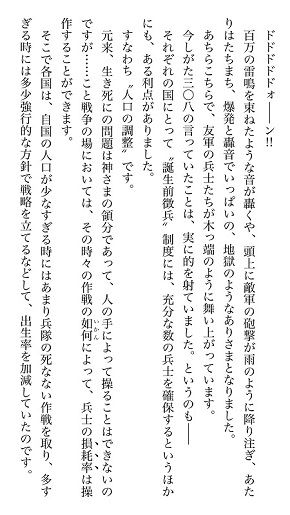 ドドドドドォ――ン!!
　百万の雷鳴を束ねたような音が轟くや、頭上に敵軍の砲撃が雨のように降り注ぎ、あた
りはたちまち、爆発と轟音でいっぱいの、地獄のようなありさまとなりました。
　あちらこちらで、友軍の兵士たちが木っ端のように舞い上がっています。
　今しがた三〇八の言っていたことは、実に的を射ていました。というのも――
　それぞれの国にとって〝誕生前徴兵〟制度には、充分な数の兵士を確保するというほか
にも、ある利点がありました。
　すなわち〝人口の調整〟です。
　元来、生き死にの問題は神さまの領分であって、人の手によって操ることはできないの
ですが……こと戦争の場においては、その時々の作戦の如何いかんによって、兵士の損耗率は操
作することができます。
　そこで各国は、自国の人口が少なすぎる時にはあまり兵隊の死なない作戦を取り、多す
ぎる時には多少強行的な方針で戦略を立てるなどして、出生率を加減していたのです。